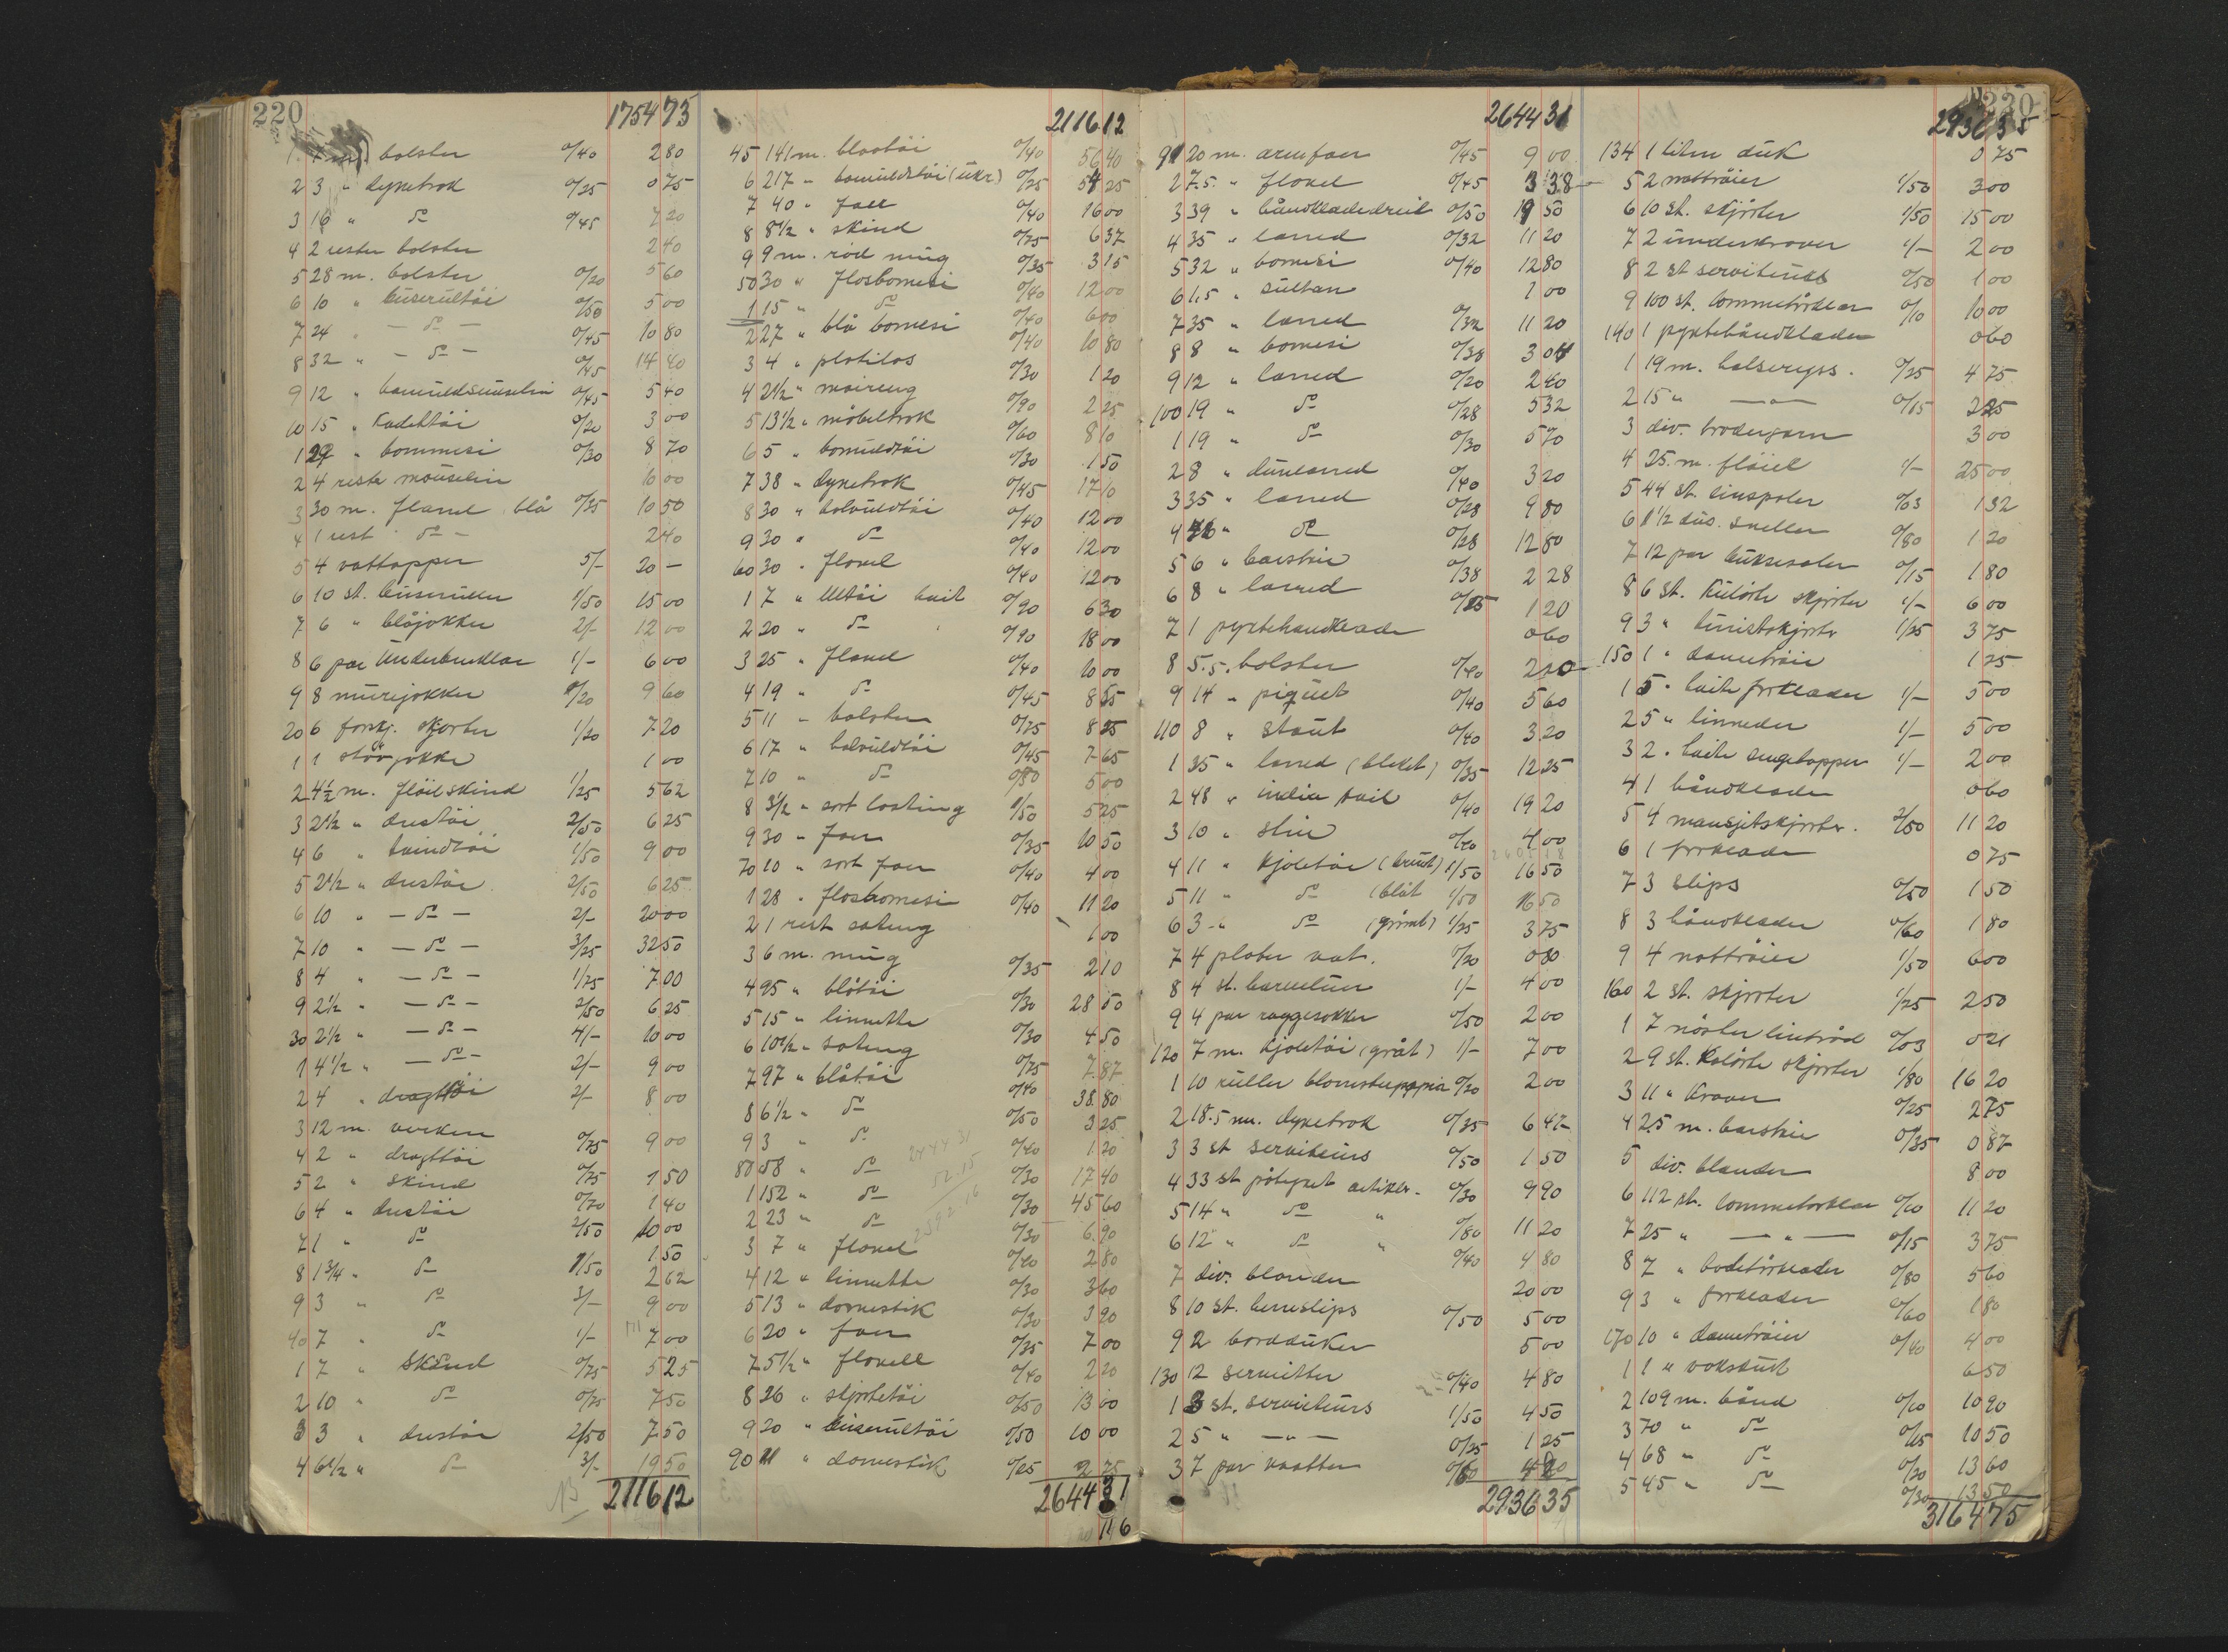 220
1754 73
1 7 m. bolster 0/40 2 80
2 3 " dynetrek 0/25 0 75
3 16 " do 0/45 7 20
4 2 rester bolster 2 40
5 28 m. bolster 0/20 5 60
6 10 " buserultöi 0/50 5 00
7 24 " - do - 0/45 10 80
8 32 " - do - 0/45 14 40
9 12 " bomuldsmuselin 0/45 5 40
10 15 " Kadettöi 0/20 3 00
1 29 " bommesi 0/30 8 70
2 4 rester mouselin 10 00
3 30 m. flanel blå 0/35 10 50
4 1 rest do - 2 40
5 4 vattepper 5/- 20 -
6 10 st. buseruller 1/50 15 00
7 6 " blåjakker 2/- 12 00
8 6 par Underbenklær 1/- 6 00
9 8 murejakker 1/20 9 60
20 6 forskj. skjorter 1/20 7 20
1 1 støvjakke 1 00
2 4½ m. flöilskind 1/25 5 62
3 2½ " drestöi 2/50 6 25
4 6 " tvindtöi 1/50 9 00
5 2½ " drestöi 2/50 6 25
6 10 " - do - 2/- 20 00
7 10 " - do - 3/25 32 50
8 4 " - do - 1/75 7 00
9 2½ " - do - 2/50 6 25
30 2½ " - do - 4/- 10 00
1 4½ " - do - 2/- 9 00
2 4 " dragttöi 2/- 8 00
3 12 m. verken 0/75 9 00
4 2 " dragttöi 0/75 1 50
5 2 " skind 0/70 1 40
6 4 " drestöi 2/50 10 00
7 1 " do 1 50
8 1¾ " do 1/50 2 62
9 3 " do 3/- 9 00
40 7 " do 1/- 7 00
1 7 " Skind 0/75 5 25
2 10 " do 0/75 7 50
3 3 " drestöi 2/50 7 50
4 6½ " do 3/- 19 50
2116 12
2116 12
45 141 m. blaatöi 0/40 56 40
6 217 " bomuldstöi (ukr) 0/25 54 25
7 40 " foer 0/40 16 00
8 8½ " skind 0/75 6 37
9 9 m. röd ming 0/35 3 15
50 30 " flosbomesi 0/40 12 00
1 15 " do 0/40 6 00
2 27 " blå bomesi 0/40 10 80
3 4 " platilas 0/30 1 20
4 2½ " moireng 0/90 2 25
5 13½ " möbeltrek 0/60 8 10
6 5 " bomuldtöi 0/30 1 50
7 38 " dynetrek 0/45 17 10
8 30 " halvuldtöi 0/40 12 00
9 30 " do 0/40 12 00
60 30 " flanel 0/40 12 00
1 7 " Ultöi hvit 0/90 6 30
2 20 " do 0/90 18 00
3 25 " flanel 0/40 10 00
4 19 " do 0/45 8 55
5 11 " bolster 0/75 8 25
6 17 " halvuldtöi 0/45 7 65
7 10 " do 0/50 5 00
8 3½ " sort lasting 1/50 5 25
9 30 " foer 0/35 10 50
70 10 " sort foer 0/40 4 00
1 28 " flosbomesi 0/40 11 20
2 1 rest sateng 1 00
3 6 m. ming 0/35 2 10
4 95 " blåtöi 0/30 28 50
5 15 " linnette 0/30 4 50
6 10½ " sateng 0/75 7.87
7 97 " blåtöi 0/40 38.80
8 6½ " do 0/50 3 25
9 3 " do 0/40 1 20
80 58 " do 0/30 17 40
1 152 " do 0/30 45 60
2 23 " do 0/30 6.90
3 7 " flanel 0/40 2 80
4 12 " linnette 0/30 3 60
5 13 " domestik 0/30 3 90
6 20 " foer 0/35 7 00
7 5½ " flanell 0/40 2 20
8 26 " skjortetöi 0/50 13 00
9 20 " buserultöi 0/50 10 00
90 11 " domestik 0/25 2 75
2644 31
116
2644 31
91 20 m. ermfoer 0/45 9 00
2 7.5 " flanel 0/45 3 38
3 39 " håndklædedreil 0/50 19 50
4 35 " lerred 0/32 11 20
5 32 " bomesi 0/40 12 80
6 1.5 " sultan 1 00
7 35 " lerred 0/32 11 20
8 8 " bomesi 0/38 3 04
9 12 " lerred 0/20 2 40
100 19 " do 0/28 5 32
1 19 " do 0/30 5 70
2 8 " dunlerred 0/40 3 20
3 35 " lerred 0/28 9 80
4 " do 0/28 12 80
5 6 " barstui 0/38 2 28
6 8 " lerred 0/15 1 20
7 1 pyntehåndklæde 0 60
8 5.5. bolster 0/40 2 20
9 14 " piquet 0/40 5 60
110 8 " stout 0/40 3 20
1 35 " lerred (bleket) 0/35 12 25
2 48 " india tvil 0/40 19 20
3 10 " stri 0/40 4 00
4 11 " kjoletöi (brunt) 1/50 16 50
5 11 " do (blåt 1/50 16 50
6 3 " do (grönt) 1/25 3 75
7 4 plater vat. 0/20 0 80
8 4 st. barnetüier 1/- 4 00
9 4 par raggesokker 0/50 2 00
120 7 m. Kjoletöi (gråt) 1/- 7 00
1 10 ruller blomsterpapir 0/20 2 00
2 18.5 m. dynetrek 0/35 6 47
3 3 st serviteurs 0/50 1 50
4 33 st påtegnet artikler 0/30 9 90
5 14 " do " 0/80 11 20
6 12 " do " 0/40 4 80
7 div. blonder 20 00
8 10 st. herreslips 0/50 5 00
9 2 bordduker 5 00
130 12 servietter 0/40 4 80
1 3 st. serviteurs 1/50 4 50
2 5 " - " - 0/25 1 25
3 7 par vaatter 0/60 4 20
2936 35
220
2936 35
134 1 liten duk 0 75
5 2 nattröier 1/50 3 00
6 10 st. skjörter 1/50 15 00
7 2 underkraver 1/- 2 00
8 2 st serviteurs 0/50 1 00
9 100 st. lommetörklær 0/10 10 00
140 1 pyntehåndklæde 0 60
1 19 m. halseryss. 0/25 4 75
2 15 " - " - 0/15 2 25
3 div. brodergarn 3 00
4 25. m. flöiel 1/- 25 00
5 44 st. linspoler 0/03 1 32
6 1½ dus. sneller 0/80 1 20
7 12 par buksesæler 0/15 1 80
8 6 st. Kulörte skjorter 1/- 6 00
9 3 " turistskjorter 1/25 3 75
150 1 " dametröie 1 25
1 5 " hvite forklæder 1/- 5 00
2 5 " linneder 1/- 5 00
3 2 " hvite sengetepper 1/- 2 00
4 1 håndklæde 0 60
5 4 mansjetskjorter. 2/80 11 20
6 1 forklæde 0 75
7 3 slips 0/50 1 50
8 3 håndklæder 0/60 1 80
9 4 nattröier 1/50 6 00
160 2 st. skjorter 1/25 2 50
1 7 nöster lintråd 0/03 0 21
2 9 st. Kolörte skjorter 1/80 16 20
3 11 " Kraver 0/25 2 75
4 2.5 m. barstui 0/35 0 87
5 div. blonder 8 00
6 112 st. lommetorklær 0/10 11 20
7 25 " - " - 0/15 3 75
8 7 " badetörklæder 0/80 5 60
9 3 " forklæder 0/60 1 80
170 10 " dametröier 0/40 4 00
1 1 " voksduk 6 50
2 109 m. bånd 0/10 10 90
3 70 " do 0/15 10 50
4 68 " do 0/20 13 60
5 45 " do 0/30 13 50
3164 75